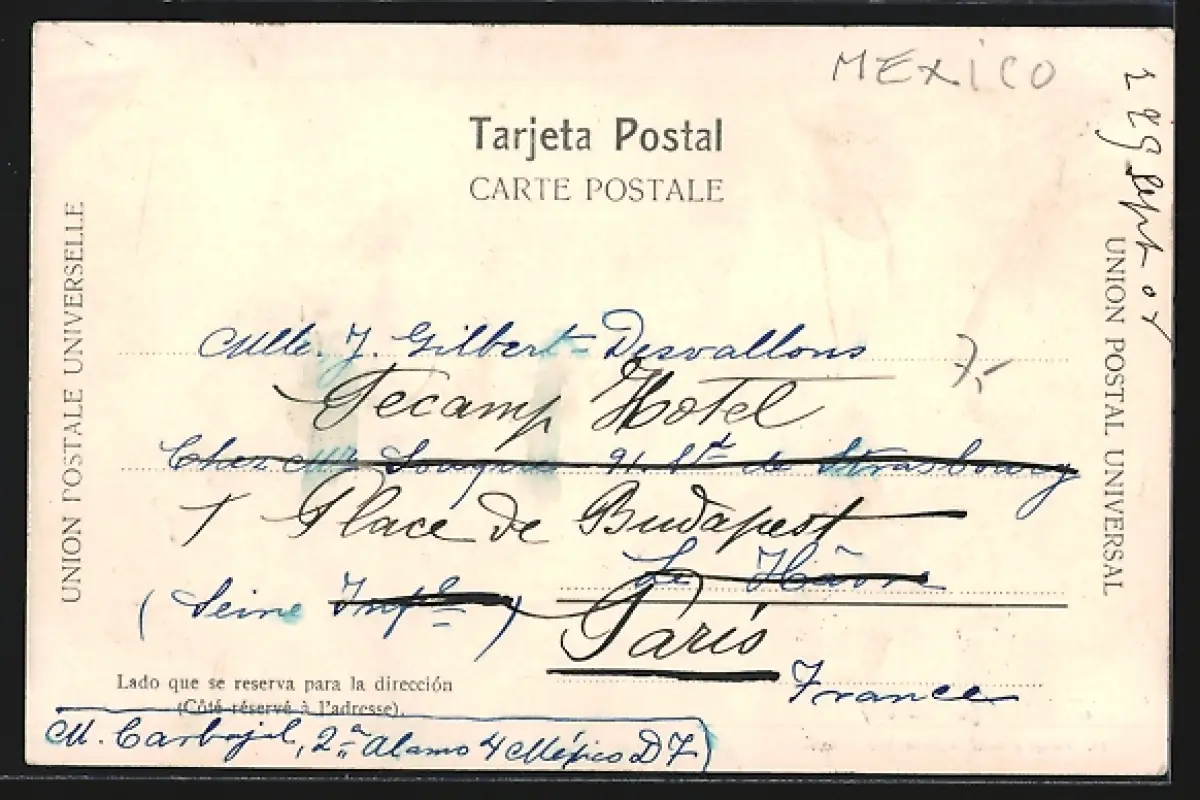 MEXICO
Tarjeta Postal
CARTE POSTALE
UNION POSTALE UNIVERSELLE
UNION POSTAL UNIVERSAL
29 Sept 0
Mlle. J. Gilbert-Desvallons
7,-
Fecamp Hotel
Chez Mr 91. de Strasbourg
7 Place de Budapest
Le Hâvre
(Seine Infre)
Paris
France
Lado que se reserva para la dirección
(Côté réservé à l'adresse).
M. Carbajal, 2ª Alamo 4 México D F